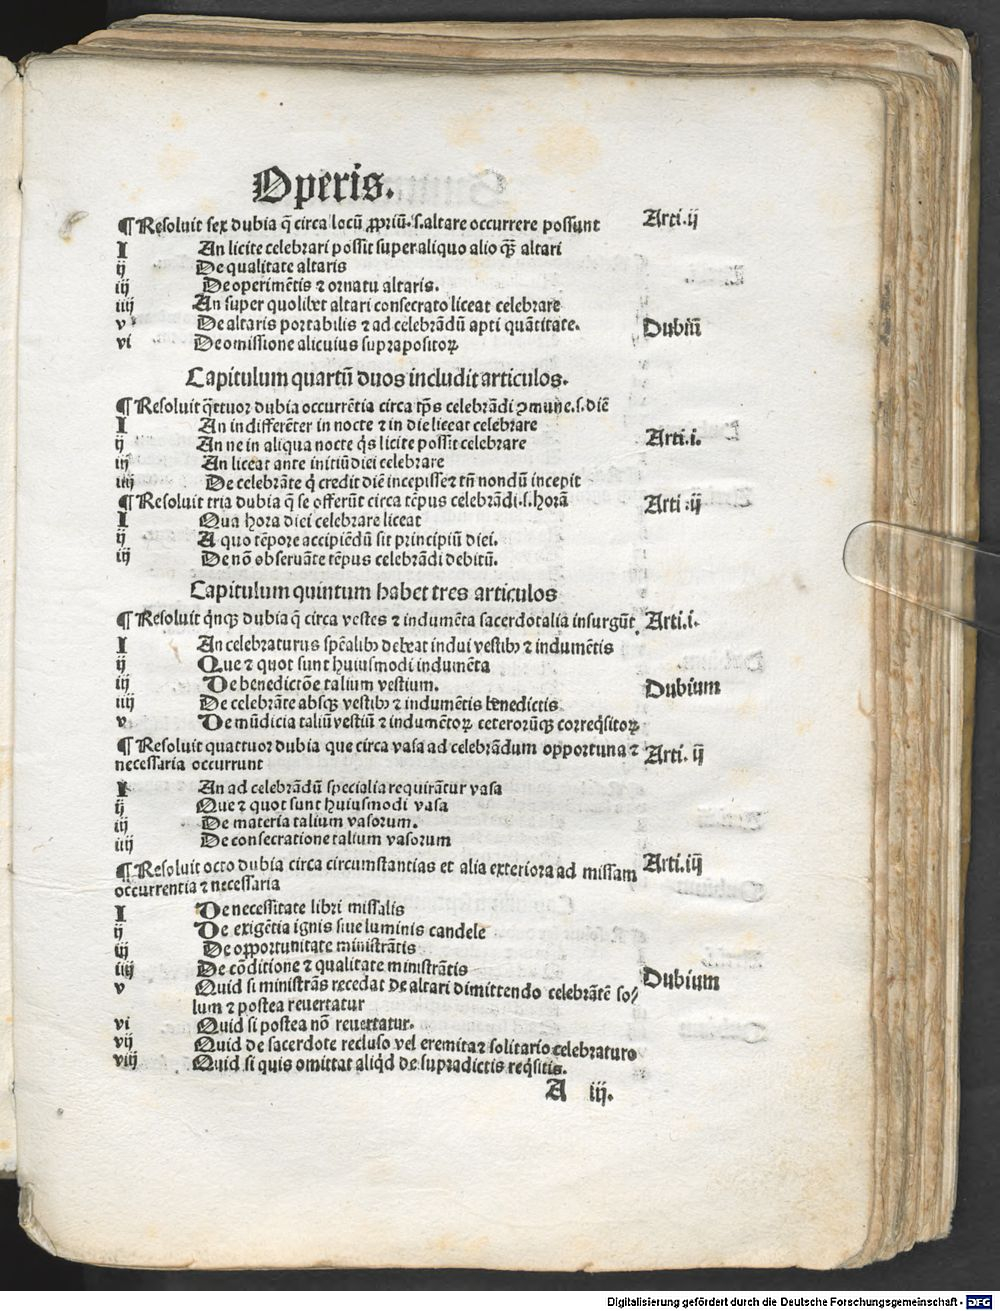 Operis.
¶ Resoluit sex dubia q̄ circa locū ꝓpriū.s.altare occurrere possunt Arti.ij
I An licite celebrari possit super aliquo alio q̄ꝫ altari
ij De qualitate altaris
iij De operimētis ⁊ ornatu altaris.
iiij An super quolibet altari consecrato liceat celebrare
v De altaris portabilis ⁊ ad celebrādū apti quātitate. Dubiū
vi De omissione alicuius suprapositoꝝ
Capitulum quartū duos includit articulos.
¶ Resoluit q̄ttuor dubia occurrētia circa tp̄s celebrādi ꝯmune.s.diē
I An indifferēter in nocte ⁊ in die liceat celebrare
ij An ne in aliqua nocte q̇s licite possit celebrare Arti.i.
iij An liceat ante initiū diei celebrare
iiij De celebrāte q̇ credit diē incepisse ⁊ tn̄ nondū incepit
¶ Resoluit tria dubia q̄ se offerūt circa tēpus celebrādi.s.horā Arti.ij
I Qua hora diei celebrare liceat
ij A quo tēpore accipiēdū sit principiū diei.
iij De nō obseruāte tēpus celebrādi debitū.
Capitulum quintum habet tres articulos
¶ Resoluit q̇nqꝫ dubia q̄ circa vestes ⁊ indumēta sacerdotalia insurgūt. Arti.i.
I An celebraturus sp̄ealibꝫ debeat indui vestibꝫ ⁊ indumētis
ij Que ⁊ quot sunt huiusmodi indumēta
iij De benedictōe talium vestium. Dubium
iiij De celebrāte absqꝫ vestibꝫ ⁊ indumētis benedictis
v De mūdicia taliū vestiū ⁊ indumētoꝝ ceterorūqꝫ correq̇sitoꝝ
¶ Resoluit quattuor dubia que circa vasa ad celebrādum opportuna ⁊ Arti.ij
necessaria occurrunt
I An ad celebrādū specialia requirātur vasa
ij Que ⁊ quot sunt huiusmodi vasa
iij De materia talium vasorum.
iiij De consecratione talium vasorum
¶ Resoluit octo dubia circa circumstantias et alia exteriora ad missam Arti.iij
occurrentia ⁊ necessaria
I De necessitate libri missalis
ij De exigētia ignis siue luminis candele
iij De oꝓportunitate ministrātis
iiij De cōditione ⁊ qualitate ministrātis Dubium
v Quid si ministrās recedat de altari dimittendo celebrātē so/
lum ⁊ postea reuertatur
vi Quid si postea nō reuertatur.
vij Quid de sacerdote recluso vel eremita ⁊ solitario celebraturo
viij Quid si quis omittat aliq̇d de supradictis req̇sitis.
A iij.
Digitalisierung gefördert durch die Deutsche Forschungsgemeinschaft - DFG